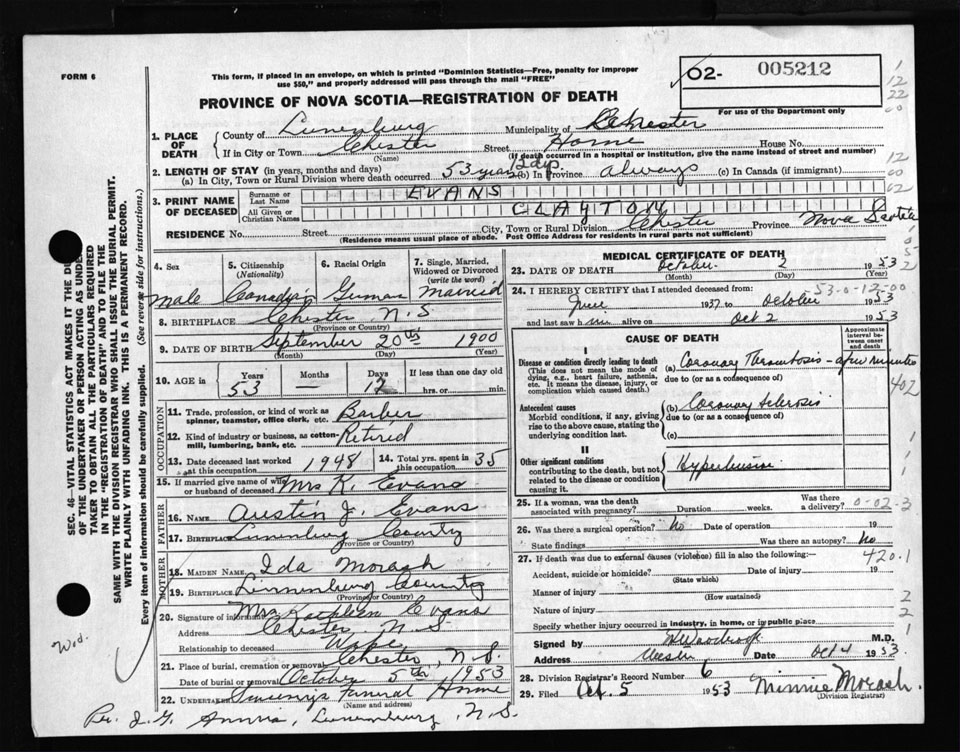 FORM 6
This form, if placed in an envelope, on which is printed "Dominion Statistics—Free, penalty for improper
use $50," and properly addressed will pass through the mail "FREE"
O2- 005212
For use of the Department only
PROVINCE OF NOVA SCOTIA—REGISTRATION OF DEATH
1. PLACE OF DEATH
County of Lunenburg Municipality of Chester
If in City or Town Chester Street Home House No.
(Name) (If death occurred in a hospital or institution, give the name instead of street and number)
2. LENGTH OF STAY (in years, months and days)
(a) In City, Town or Rural Division where death occurred 53 years 12 days (b) In Province always (c) In Canada (if immigrant)
3. PRINT NAME OF DECEASED
Surname or Last Name EVANS
All Given or Christian Names CLAYTON
RESIDENCE No. Street City, Town or Rural Division Chester Province Nova Scotia
(Residence means usual place of abode. Post Office Address for residents in rural parts not sufficient)
4. Sex
male
5. Citizenship (Nationality)
Canadian
6. Racial Origin
German
7. Single, Married, Widowed or Divorced (write the word)
married
8. BIRTHPLACE Chester N.S
(Province or Country)
9. DATE OF BIRTH September 20th 1900
(Month) (Day) (Year)
10. AGE in Years Months Days If less than one day old
53 — 12 hrs. or min.
OCCUPATION
11. Trade, profession, or kind of work as spinner, teamster, office clerk, etc. Barber
12. Kind of industry or business, as cotton-mill, lumbering, bank, etc. Retired
13. Date deceased last worked at this occupation 1948
14. Total yrs. spent in this occupation 35
15. If married give name of wife or husband of deceased Mrs K. Evans
FATHER
16. NAME Austin J. Evans
17. BIRTHPLACE Lunenburg County
(Province or Country)
MOTHER
18. MAIDEN NAME Ida Morash
19. BIRTHPLACE Lunenburg County
(Province or Country)
20. Signature of informant Mrs. Kathleen Evans
Address Chester N.S.
Relationship to deceased Wife
21. Place of burial, cremation or removal Chester, N.S.
Date of burial or removal October 5th 1953
22. UNDERTAKER Funeral Home
(Name and address)
Per. J.G. Lunenburg, N.S.
MEDICAL CERTIFICATE OF DEATH
23. DATE OF DEATH October 2 1953
(Month) (Day) (Year)
24. I HEREBY CERTIFY that I attended deceased from:
53-0-12-00
June 1937 to October 1953
and last saw him alive on Oct 2 1953
CAUSE OF DEATH
Approximate interval between onset and death
I
Disease or condition directly leading to death
(This does not mean the mode of dying, e.g., heart failure, asthenia, etc. It means the disease, injury, or complication which caused death.)
(a) Coronary Thrombosis - a few minutes
due to (or as a consequence of)
402
Antecedent causes
Morbid conditions, if any, giving rise to the above cause, stating the underlying condition last.
(b) Coronary sclerosis
due to (or as a consequence of)
(c)
II
Other significant conditions
contributing to the death, but not related to the disease or condition causing it.
Hypertension
25. If a woman, was the death associated with pregnancy? Duration weeks. Was there a delivery? 0-02-3
26. Was there a surgical operation? No Date of operation 19
State findings Was there an autopsy? No
27. If death was due to external causes (violence) fill in also the following:—
420.1
Accident, suicide or homicide? Date of injury 19
(State which)
Manner of injury
(How sustained)
Nature of injury
Specify whether injury occurred in industry, in home, or in public place
Signed by M.D.
Address Chester Date Oct 4 1953.
28. Division Registrar's Record Number 6
29. Filed Oct. 5 1953 Minnie Morash.
(Division Registrar)
SEC. 46—VITAL STATISTICS ACT MAKES IT THE DUTY
OF THE UNDERTAKER OR PERSON ACTING AS UNDER-
TAKER TO OBTAIN ALL THE PARTICULARS REQUIRED
IN THE "REGISTRATION OF DEATH" AND TO FILE THE
SAME WITH THE DIVISION REGISTRAR WHO SHALL ISSUE THE BURIAL PERMIT.
WRITE PLAINLY WITH UNFADING INK. THIS IS A PERMANENT RECORD.
Every item of information should be carefully supplied. (See reverse side for instructions.)
Wid.